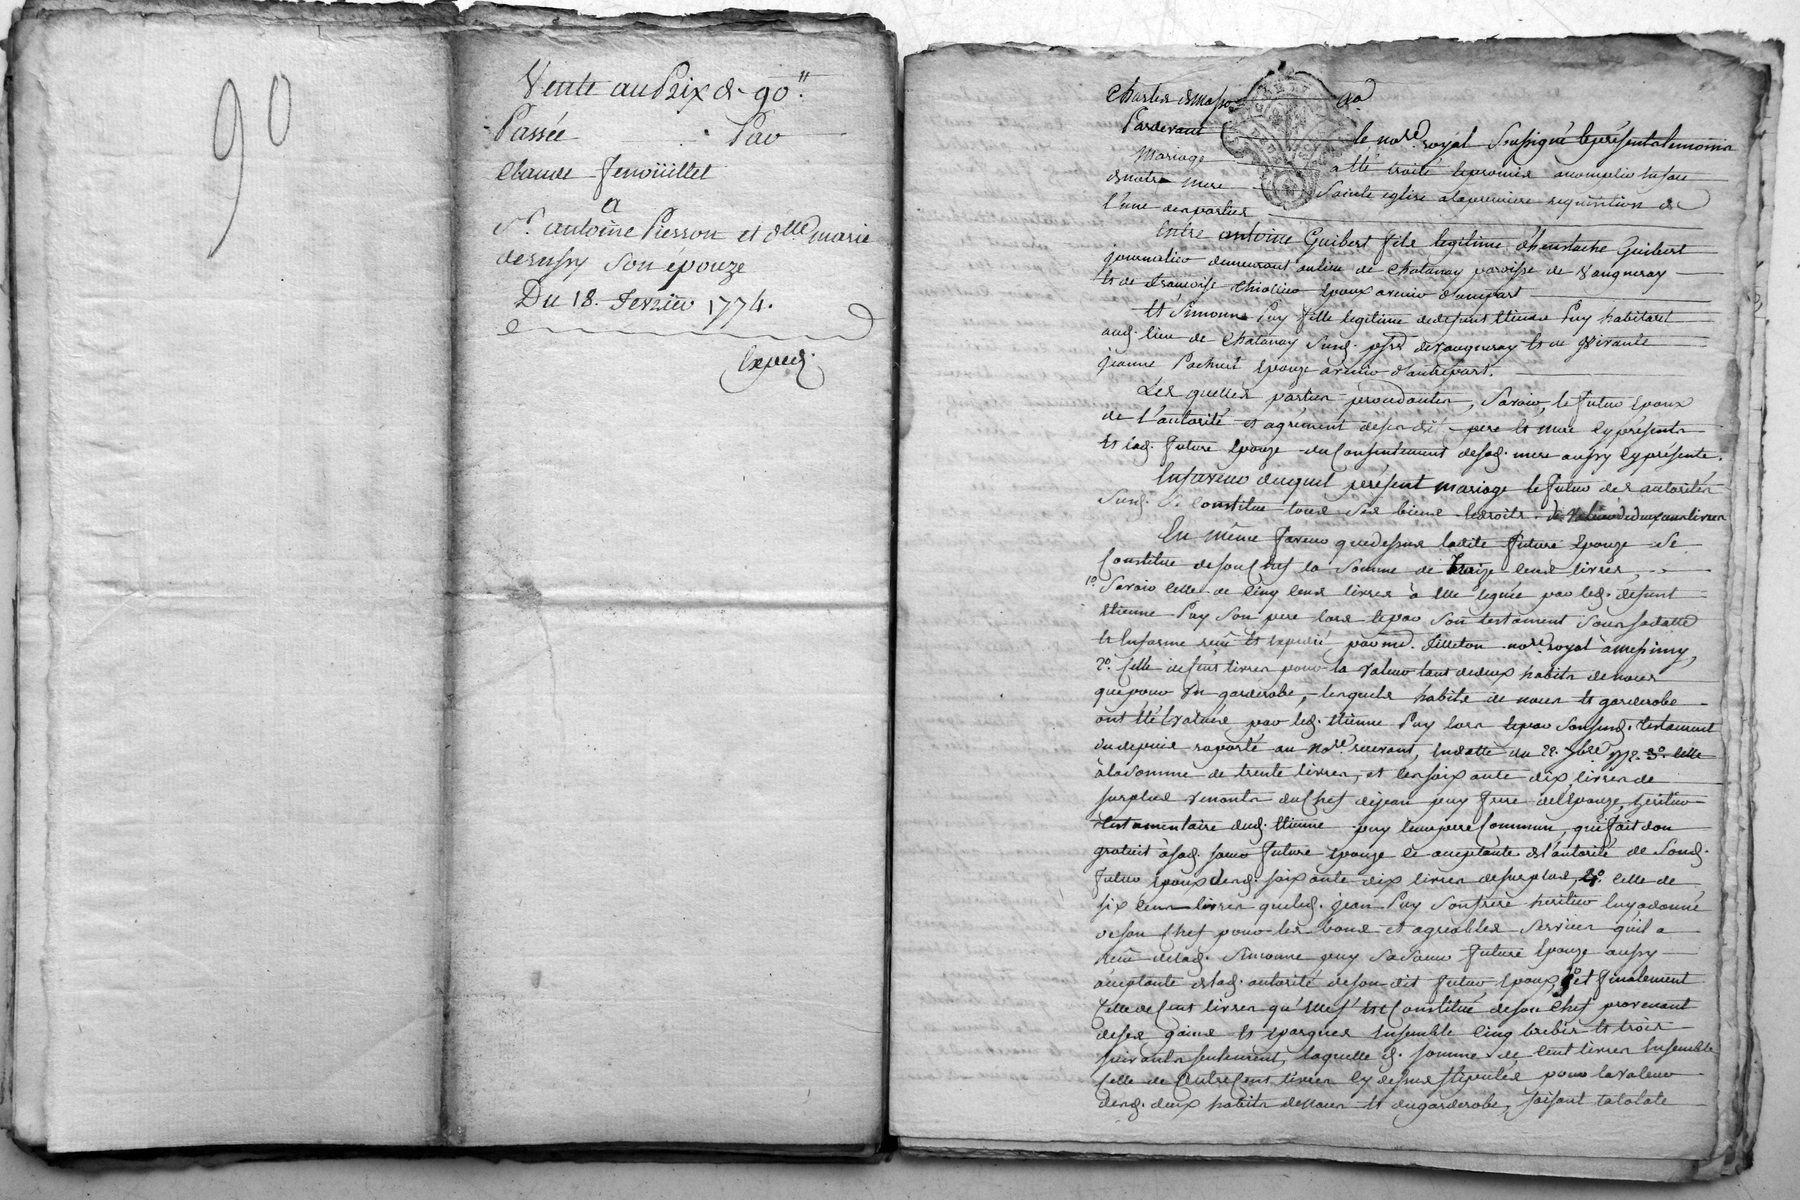 90
Vente au Prix de 90.tt
Passée Par
Claude fenoüillet
a
Sr. antoine Piesson et dlle marie
son epouze
Du 18. fevrier 1774.
Expedé.
Pardevant le nore. royal soussigné et présents les temoins
Mariage a été traité et promis accomplir en face
de notre mere Sainte eglise a la premiere requisition de
l'une des parties
Entre antoine Guibert fils legitime d'heustache Guibert
journalier demeurant au lieu de Chatanay paroisse de Vaugneray
Et de francoise epoux a venir d'une part
Et Simonne Puy fille legitime de defunt Etienne Puy habitant
aud. lieu de Chatanay susd. psse de Vaugneray Et de vivante
jeanne epouze a venir d'autre part.
Les quelles parties procedantes, savoir, le futur Epoux
de l'autorité et agrément de ses dits pere Et mere Cy présents
Et lad. future Epouze du Consentement de sad. mere aussy Cy présente.
En faveur duquel présent mariage le futur des autorités
susd. Se Constitue tous ses biens Et droits de Valeur de deux cens livres
En même faveur que dessus ladite future Epouze se
Constitue de son Chef la somme de treize Cens livres,
1o. Savoir Celle de Cinq Cens livres à Elle leguée par led. defunt
Etienne Puy son pere lors Et par son testament sous sa datte
Et En forme reçu Et expedié par me. nore. royal à messimy,
2o. Celle de Cent livres pour la Valeur tant de deux habits de noces
que pour Un garderobe, lesquels habits de noces Et garderobe
ont été Evalués par led. Etienne Puy lors Et par son susd. testament
à la somme de trente livres, et les soixante dix livres de
surplus Venants du Chef de jean puy frere de l'Epouze, heritier
testamentaire dud. Etienne puy leur pere Commun, qui fait don
gratuit à sad. soeur future Epouze Ce acceptante de l'autorité de Sond.
futur Epoux desd. soixante dix livres de surplus, 4o. Celle de
six Cens livres que led. jean Puy son frere heritier luy a donné
de son Chef pour les bons et agreables services qu'il a
reçu de lad. Simonne puy sa soeur future Epouze aussy
acceptante de lad. autorité de son dit futur Epoux, 5o. et finalement
Celle de Cent livres qu'Elle s'Est Constitué de son Chef provenant
de ses gains Et Epargnes Ensemble Cinq brebis Et trois
suivants seulement, laquelle d. somme de Cent livres Ensemble
Celle de autre Cent livres Cy dessus stipulée pour la Valeur
desd. deux habits de noces Et du garderobe, faisant la totale